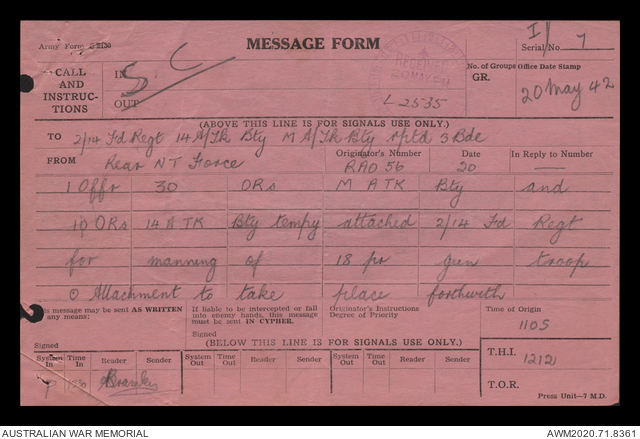 Army Form C 2130
MESSAGE FORM
Serial No. I/ 7
CALL AND INSTRUC-TIONS
IN
OUT
5 C
RECEIVED
L 2535
No. of Groups
GR.
Office Date Stamp
20 May 42
(ABOVE THIS LINE IS FOR SIGNALS USE ONLY.)
TO 2/14 Fd Regt 14 A/Tk Bty M A/Tk Bty rptd 3 Bde
FROM Rear NT Force
Originator's Number RAO 56
Date 20
In Reply to Number —
1 Offr 30 ORs M A TK Bty and
10 ORs 14 A TK Bty tempy attached 2/14 Fd Regt
for manning of 18 pr gun troop
⊙ Attachment to take place forthwith
This message may be sent AS WRITTEN by any means:
If liable to be intercepted or fall into enemy hands, this message must be sent IN CYPHER.
Originator's Instructions
Degree of Priority
Time of Origin
1105
Signed
Signed
(BELOW THIS LINE IS FOR SIGNALS USE ONLY.)
T.H.I. 1212
System In
Time In
Reader
Sender
System Out
Time Out
Reader
Sender
System Out
Time Out
Reader
Sender
T.O.R.
Press Unit—7 M.D.
AUSTRALIAN WAR MEMORIAL
AWM2020.71.8361